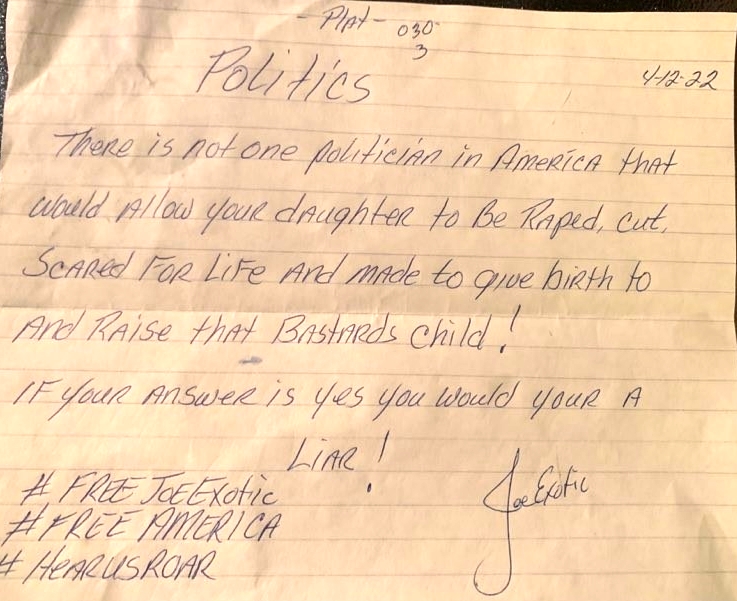 - Plat - 030
3
Politics
4-12-22
There is not one politician in America that
would Allow your daughter to Be Raped, cut,
Scared For Life And made to give birth to
And Raise that Bastards child!
If your answer is yes you would your A
Liar!
# FREE JoeExotic
Joe Exotic
# FREE AMERICA
# HEARUSROAR